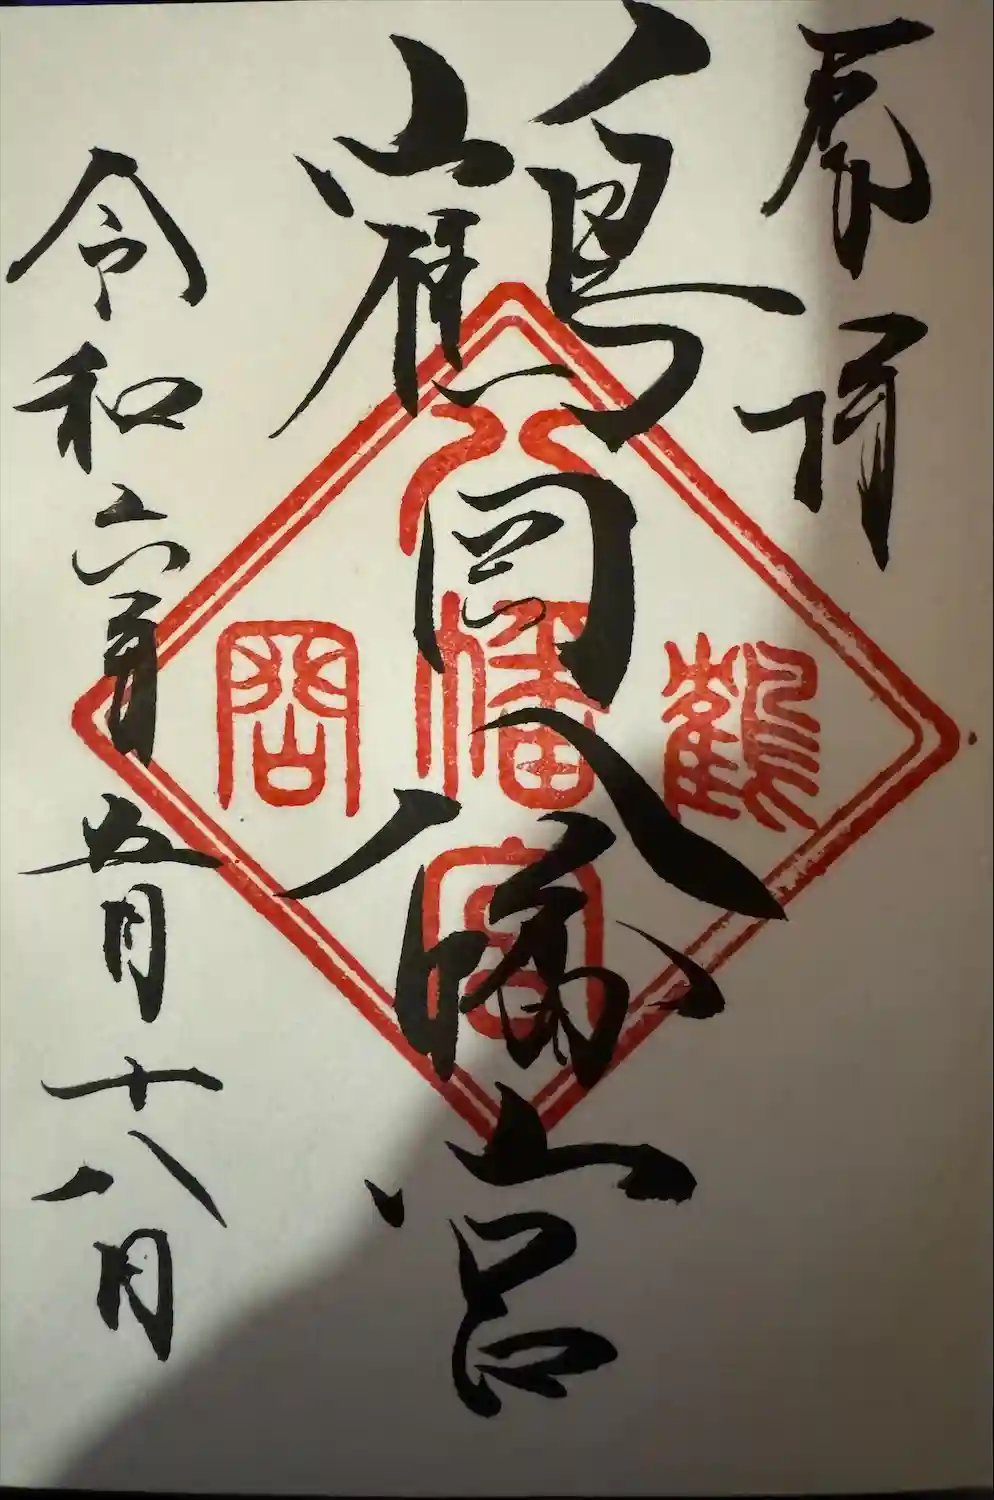 奉拝
鶴岡八幡宮
八幡宮
鶴
岡
令和六年五月十八日